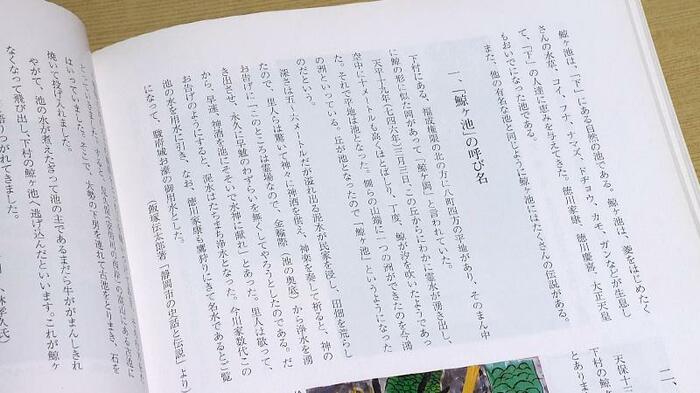 鯨ヶ池は、「下」にある自然の池である。鯨ヶ池は、菱をはじめたく
さんの水草、コイ、フナ、ナマズ、ドヂョウ、カモ、ガンなどが生息し
て、「下」の人達に恵みを与えてきた。徳川家康、徳川慶喜、大正天皇
もおいでになった池である。
また、他の有名な池と同じように鯨ヶ池にはたくさんの伝説がある。
一、「鯨ヶ池」の呼び名
下村にある、福成権現の北の方に八町四方の平地があり、そのまん中
に鯨の形に似た岡があって、「鯨ヶ岡」と言われていた。
天平十九年(七四六年)三月三日、この丘からにわかに霊水が湧き出し、
空中に十メートルも高くほとばしり、丁度、鯨が汐を吹いたようであっ
た。それで平地は池となった。側らの山端に一つの洲ができたのを今湯
の洲といっている。丘が池となったので「鯨ヶ池」というようになった
のだという。
深さは五、六メートルだが溢れ出る泥水が民家を浸し、田畑を荒らし
たので、里人らは驚いて神々に神酒を供え、神楽を奏して祈ると、神の
お告げに「このところは霊場なので、金輪際(池の奥底)から浄水を湧
き出させ、永久に旱魃のわずらいを無くしてやろうとしたのである。だ
から、早速、神酒を池にそそいで水神に献れ」とあった。里人は敬って、
お告げのようにすると、泥水はたちまち浄水となった。今川家数代この
池の水を用水に引き、なお、徳川家康も鷹狩りにきて名水であるとご覧
になって、駿府城お濠の御用水とした。
(飯塚伝太郎著「静岡市の史話と伝説」より)
はいっていました。そこで、大勢の下男を連れて古池をとりまき、石を
焼いて投げ入れました。
やがて、池の水が煮えたぎって池の主であるまだら牛ががまんしきれ
なくなって飛び出し、下村の鯨ヶ池へ逃げ込んだといいます。これが鯨ヶ
二、
天保十三
下村の鯨
とありま